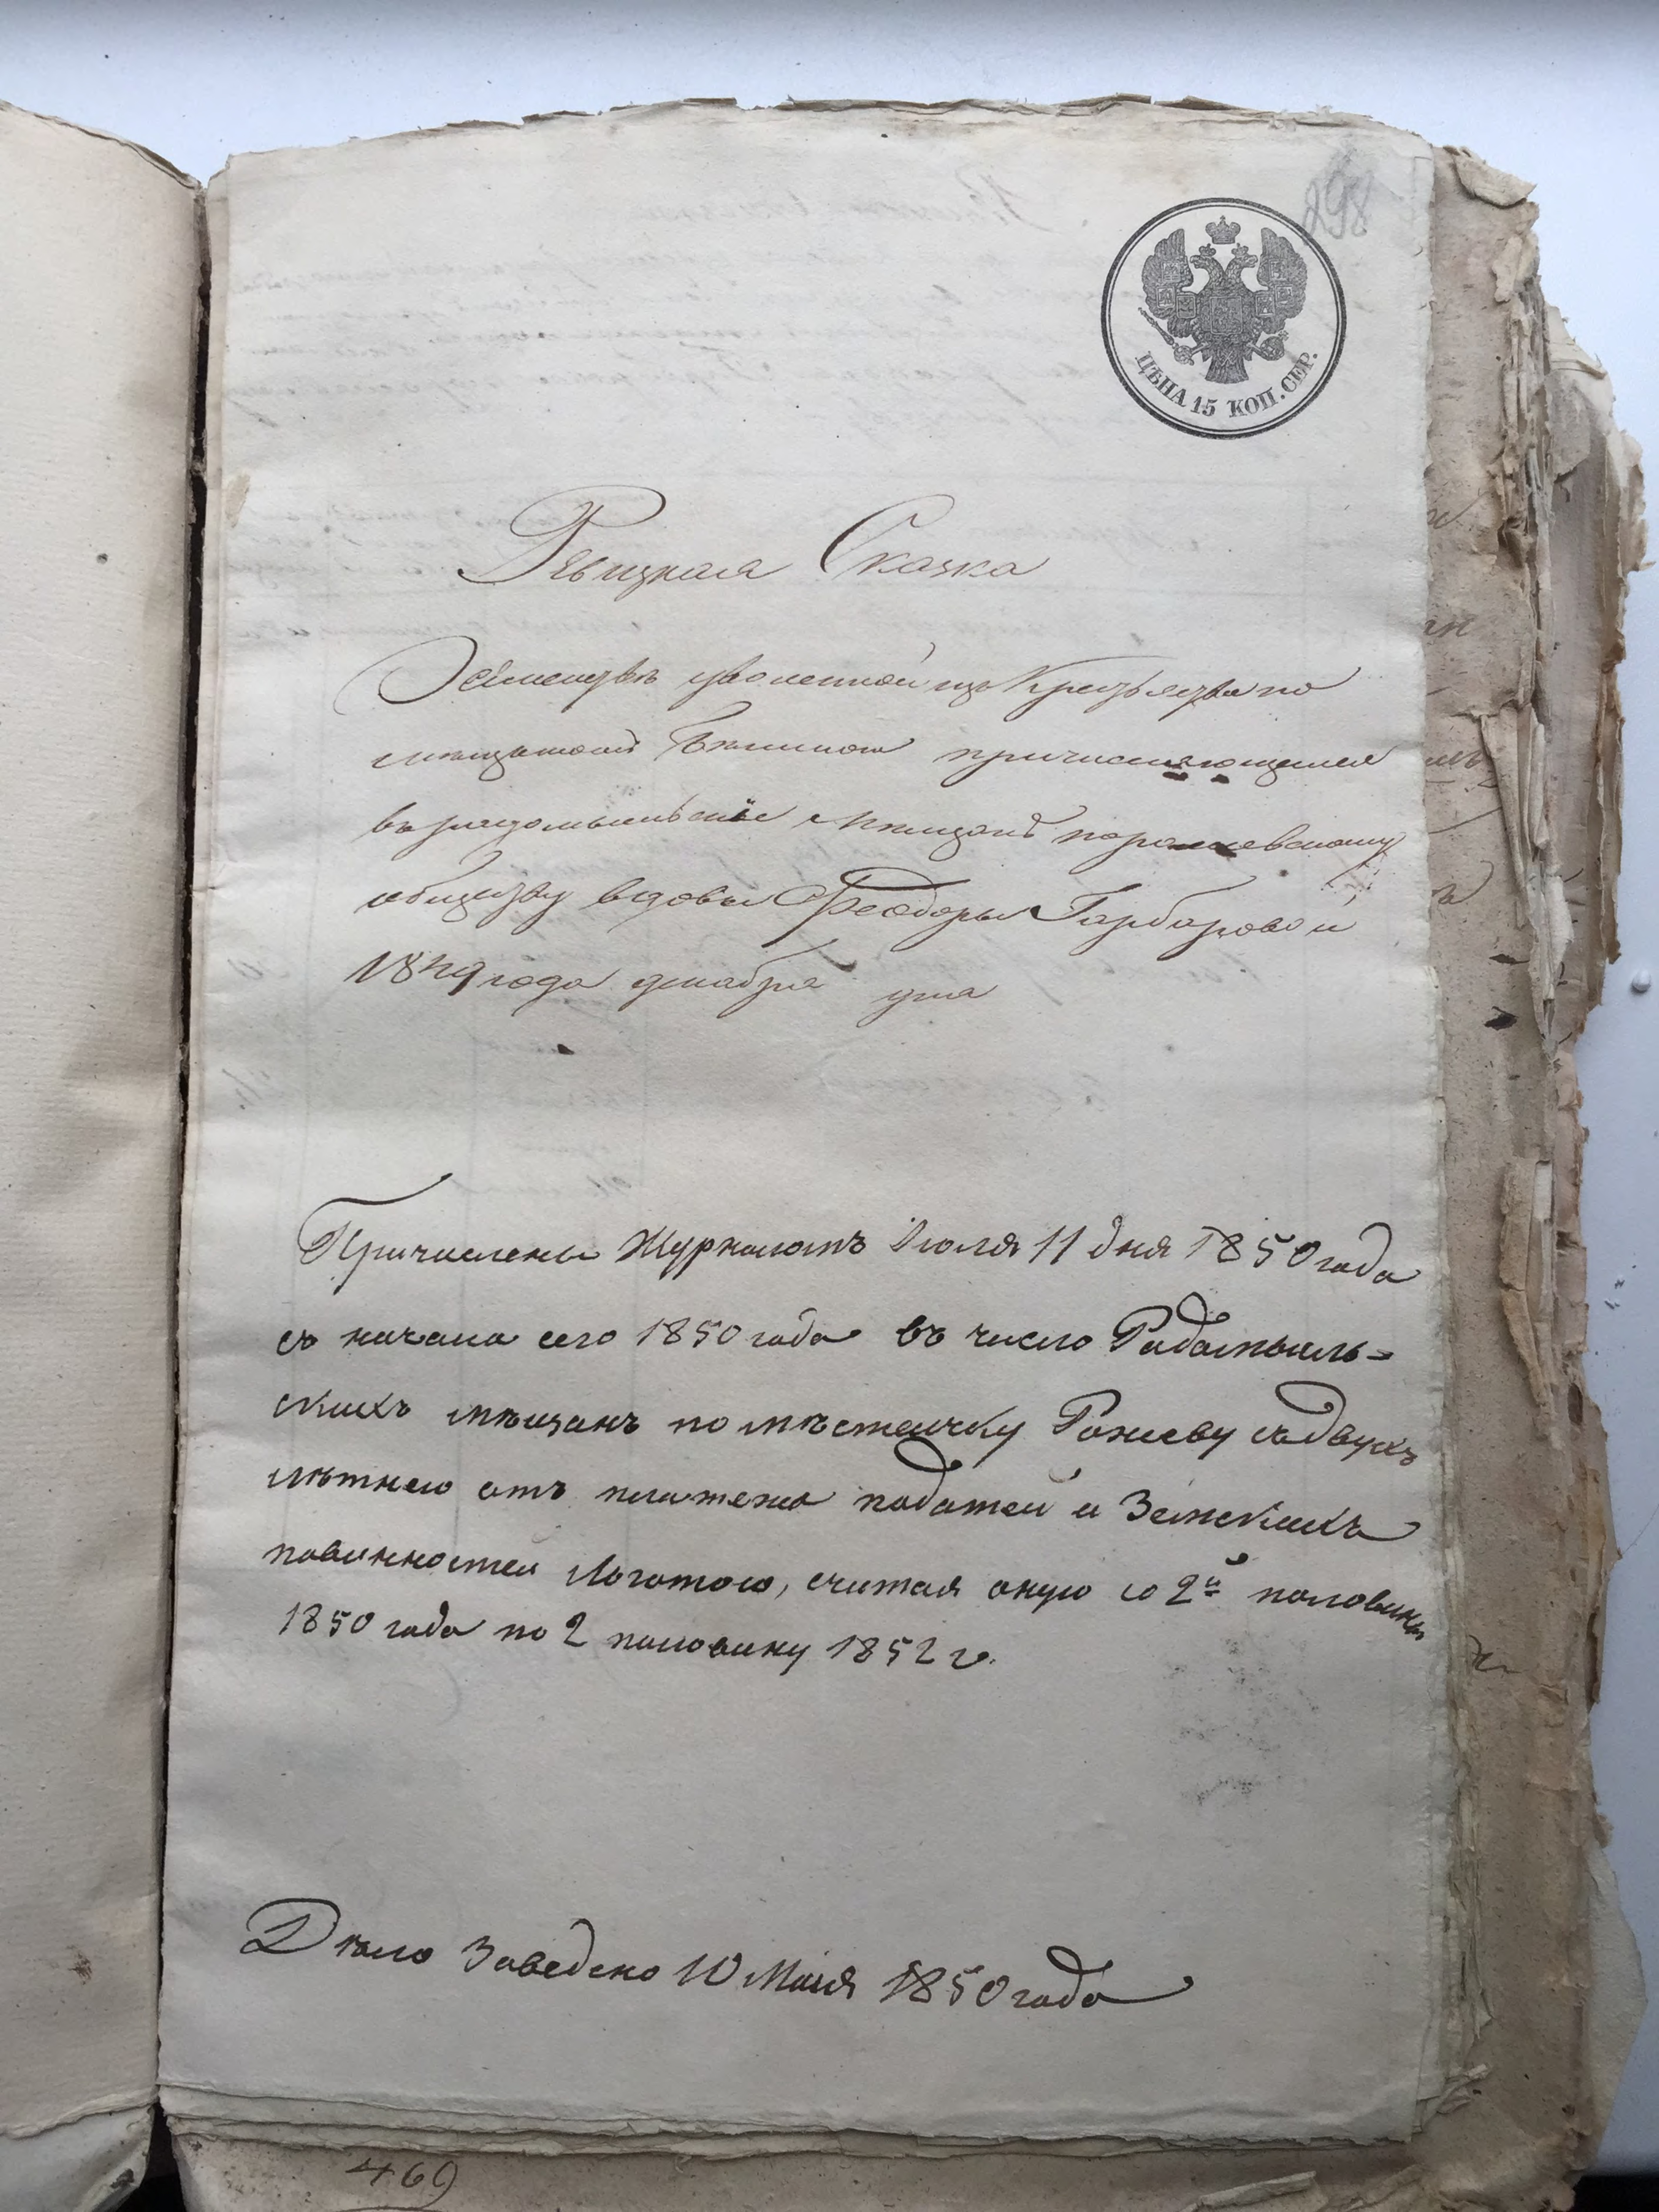 298
ЦѢНА 15 КОП. СЕР.
Ревизкая Сказка
О семействѣ уволенной изъ Крестьянства по
причисляющемся
въ радомысльскіе мѣщане по рожевскому
обществу вдовы Феодоры Гарбарзовой
1849 года декабря дня
Причислены Журналомъ Іюля 11 дня 1850 года
съ начала сего 1850 года въ число Радомысль=
скихъ мѣщанъ по мѣстечку Рожеву съ двухъ
лѣтнею отъ платежа податей и Земскихъ
повинностей Льготою, считая оную со 2й половины
1850 года по 2 половину 1852 г.
Дѣло Заведено 10 Мая 1850 года
469